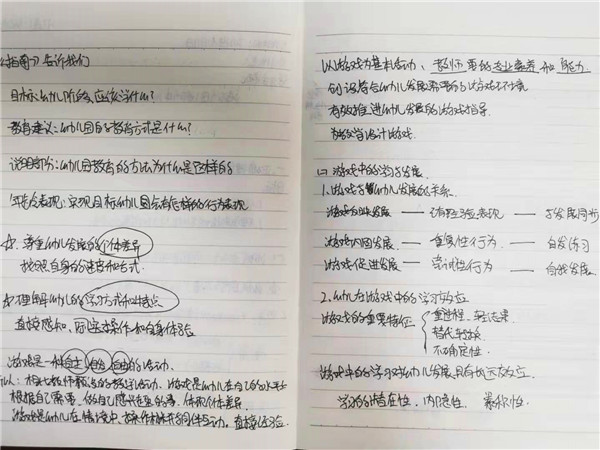 《指南》告诉我们
目标:幼儿所应该学什么?
教育建议:幼儿园的教育方式是什么?
说明部分:幼儿园教育的方法为什么是这样的
年龄段表现:实现目标幼儿园会有怎样的行为表现
☆. 尊重幼儿发展的个体差异
按照自身的速度和方式.
☆理解幼儿的学习方式和特点
直接感知、实际操作和亲身体验
游戏是一种自主 自由的活动.
根据自己需要,做自己感兴趣的事,体现个体差异.
游戏是幼儿在情境中、在操作材料与同伴互动,直接经验.
以游戏为基本活动、教师要的专业素养和能力
创设符合幼儿发展需要的游戏环境
有效推进幼儿发展的游戏指导.
有效设计游戏.
四 游戏中的学习与发展.
1.游戏与幼儿发展的关系.
游戏反映发展 — 已有经验表现 — 与发展同步
游戏巩固发展 — 重复性行为 — 自发练习
游戏促进发展 — 尝试性行为 — 自我发展.
2.幼儿在游戏中的学习效应
游戏的重要特征 { 重过程,轻结果.
替代转换
不确定性.
游戏中的学习对幼儿发展具有长远效应.
学习的潜在性、内隐性、累积性.